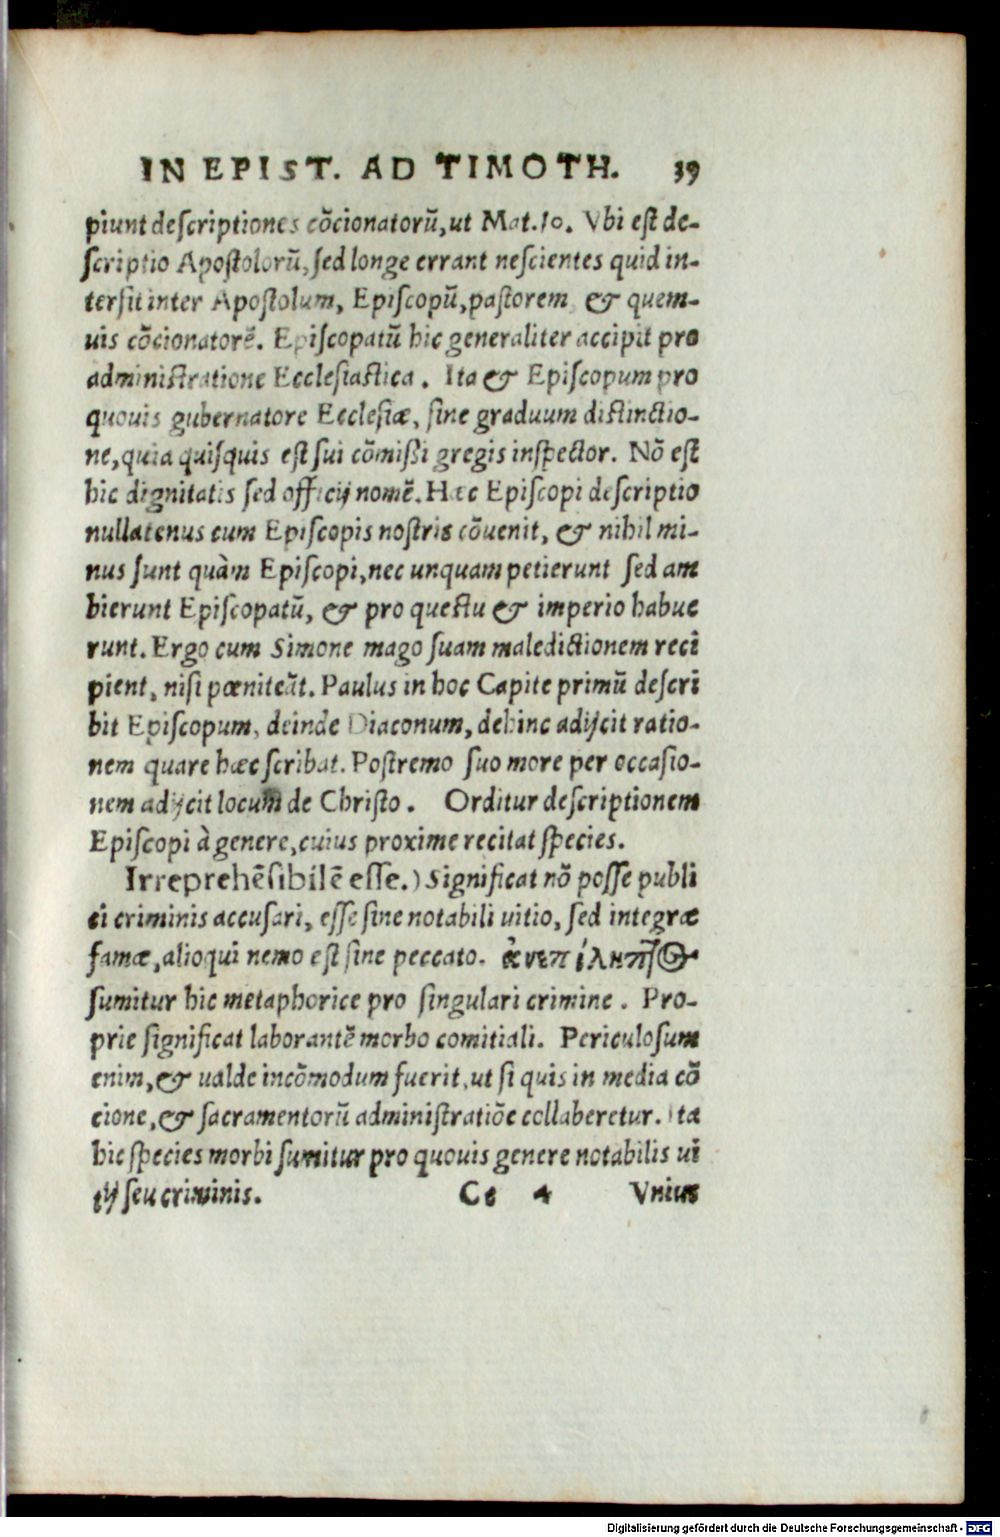 IN EPIST. AD TIMOTH. 39
piunt descriptiones cōcionatorū, ut Mat. 10. Vbi est de-
scriptio Apostolorū, sed longe errant nescientes quid in-
tersit inter Apostolum, Episcopū, pastorem, & quem-
uis cōcionatorē. Episcopatū hic generaliter accipit pro
administratione Ecclesiastica. Ita & Episcopum pro
quouis gubernatore Ecclesiæ, sine graduum distinctio-
ne, quia quisquis est sui cōmißi gregis inspector. Nō est
hic dignitatis sed officij nomē. Hæc Episcopi descriptio
nullatenus cum Episcopis nostris cōuenit, & nihil mi-
nus sunt quàm Episcopi, nec unquam petierunt sed am
bierunt Episcopatū, & pro questu & imperio habue
runt. Ergo cum Simone mago suam maledictionem reci
pient, nisi pœniteāt. Paulus in hoc Capite primū descri
bit Episcopum, deinde Diaconum, dehinc adijcit ratio-
nem quare hæc scribat. Postremo suo more per occasio-
nem adijcit locum de Christo. Orditur descriptionem
Episcopi à genere, cuius proxime recitat species.
Irreprehēsibilē esse.) Significat nō posse publi
ci criminis accusari, esse sine notabili uitio, sed integræ
famæ, alioqui nemo est sine peccato. ἀνεπίληπτος
sumitur hic metaphorice pro singulari crimine. Pro-
prie significat laborantē morbo comitiali. Periculosum
enim, & ualde incōmodum fuerit, ut si quis in media cō
cione, & sacramentorū administratiōe collaberetur. Ita
hic species morbi sumitur pro quouis genere notabilis ui
tij seu criminis. Cc 4 Vnius
Digitalisierung gefördert durch die Deutsche Forschungsgemeinschaft - DFG